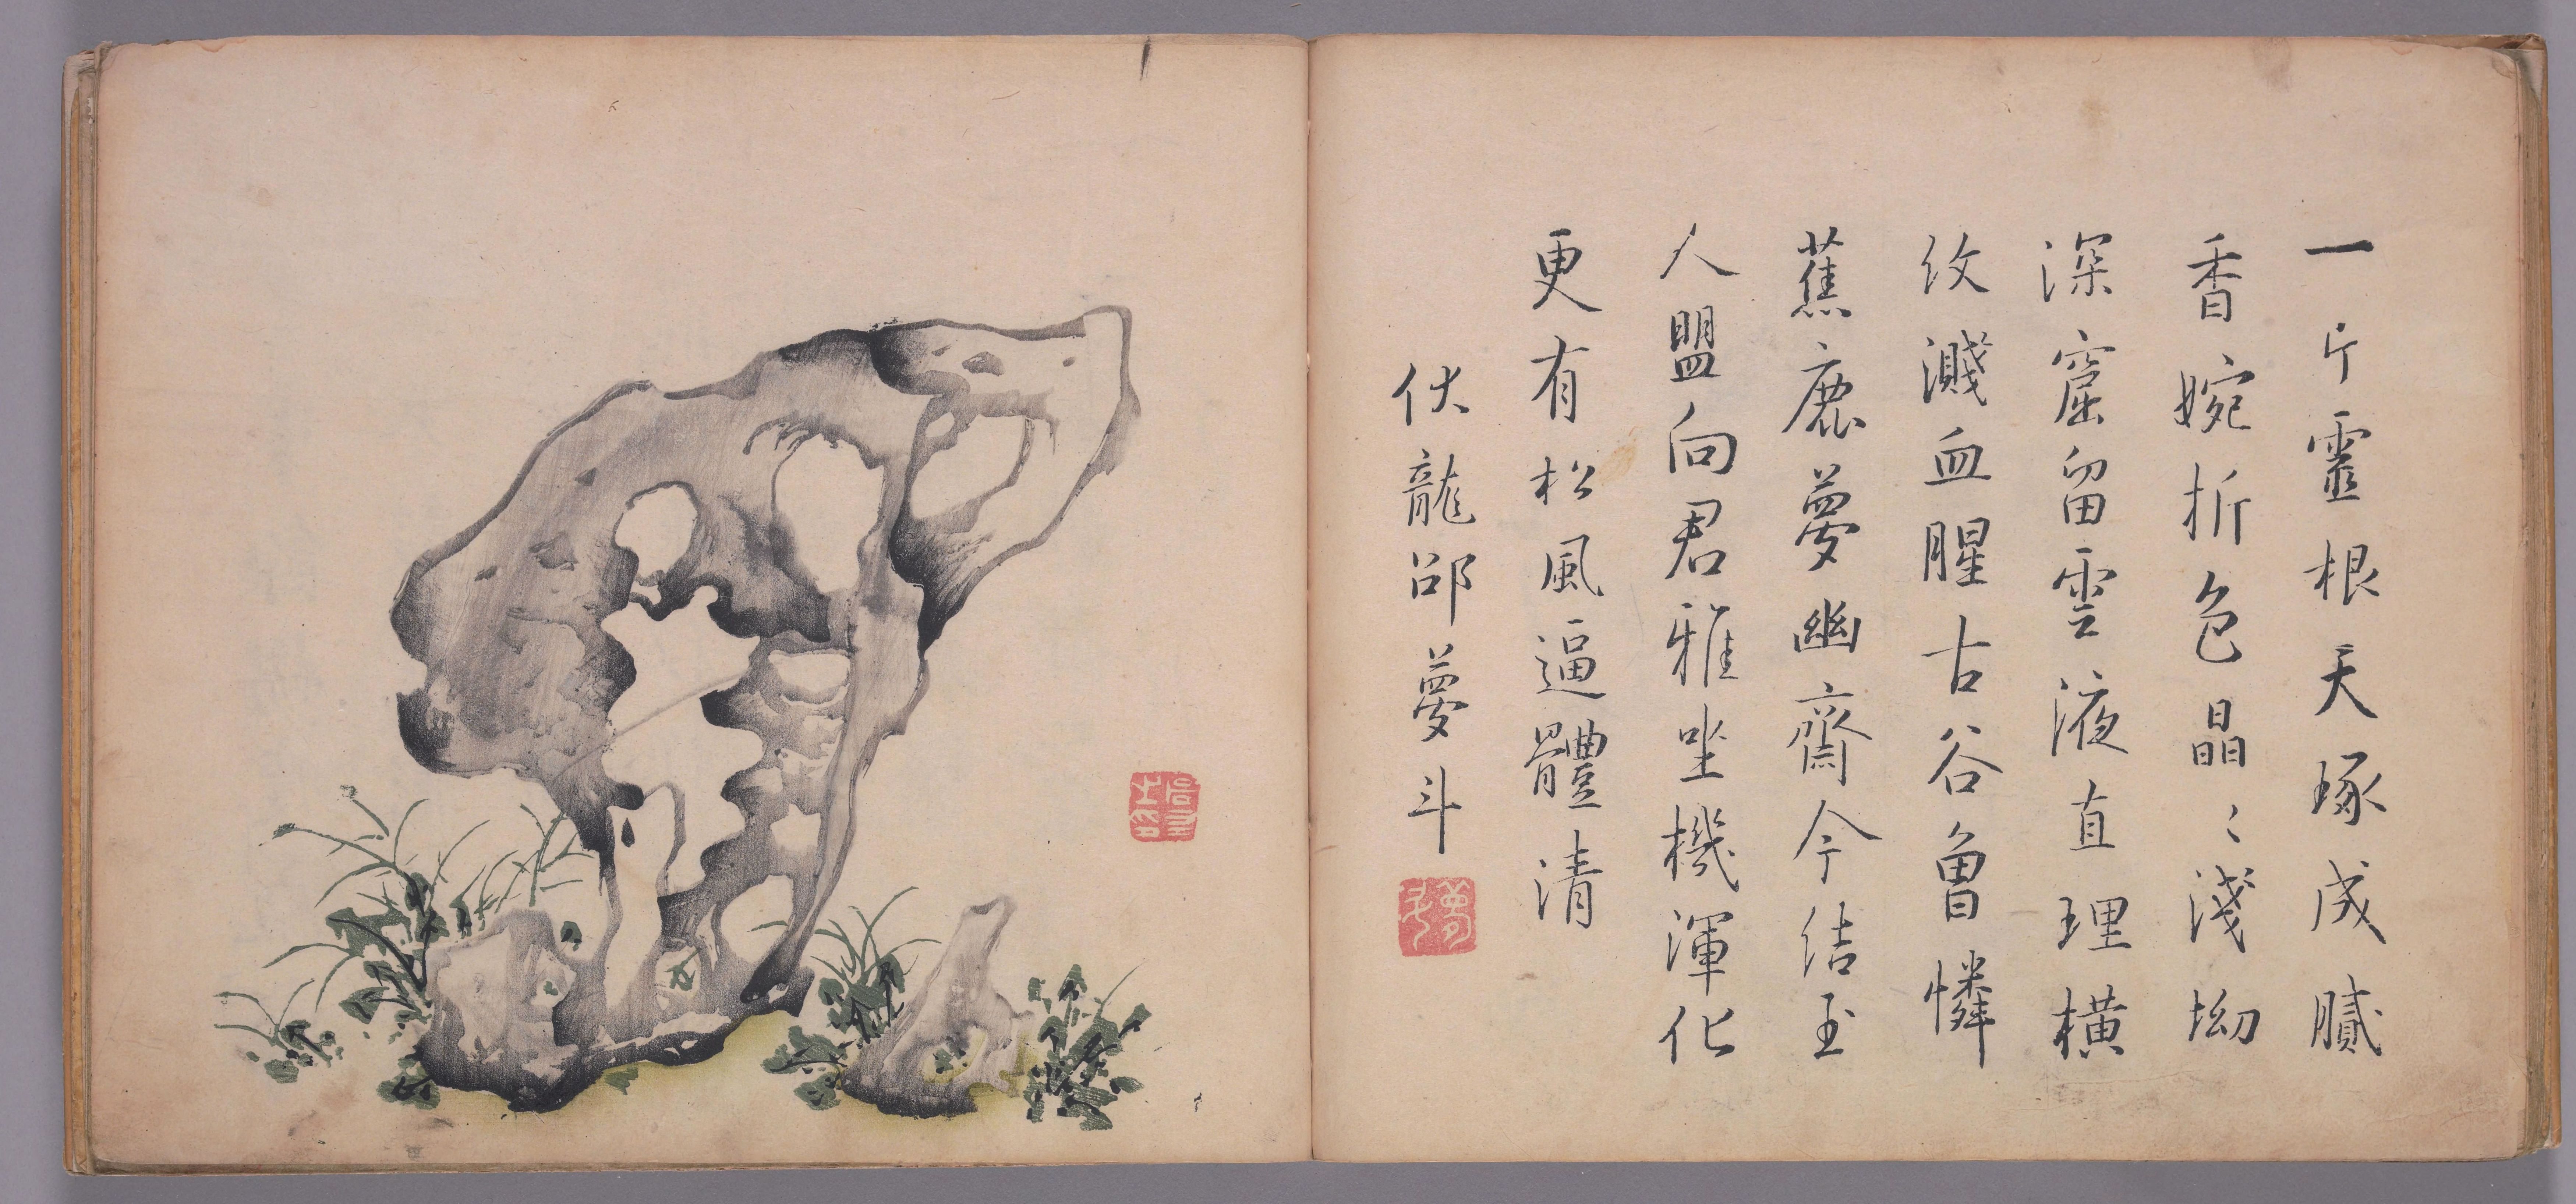 一片靈根天琢成膩
香婉折色晶〻淺坳
深窟留雲液直理橫
紋濺血腥古谷曾憐
蕉鹿夢幽齋今結玉
人盟向君雅坐機渾化
更有松風逼體清
伏龍邵夢斗